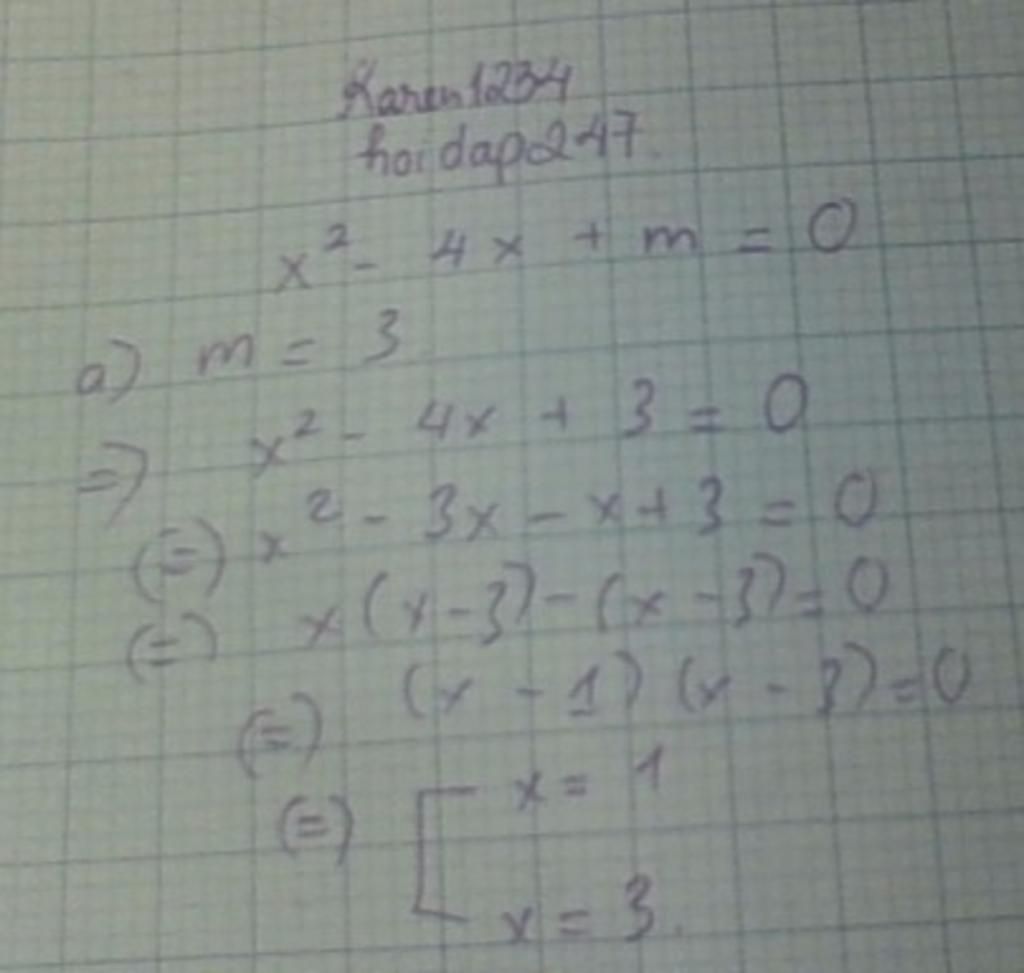 Karen1234
hoidap247
x² - 4x + m = 0
a) m = 3
=) x² - 4x + 3 = 0
(=) x² - 3x - x + 3 = 0
(=) x(x - 3) - (x - 3) = 0
(=) (x - 1) (x - 3) = 0
(=) [ x = 1
x = 3.